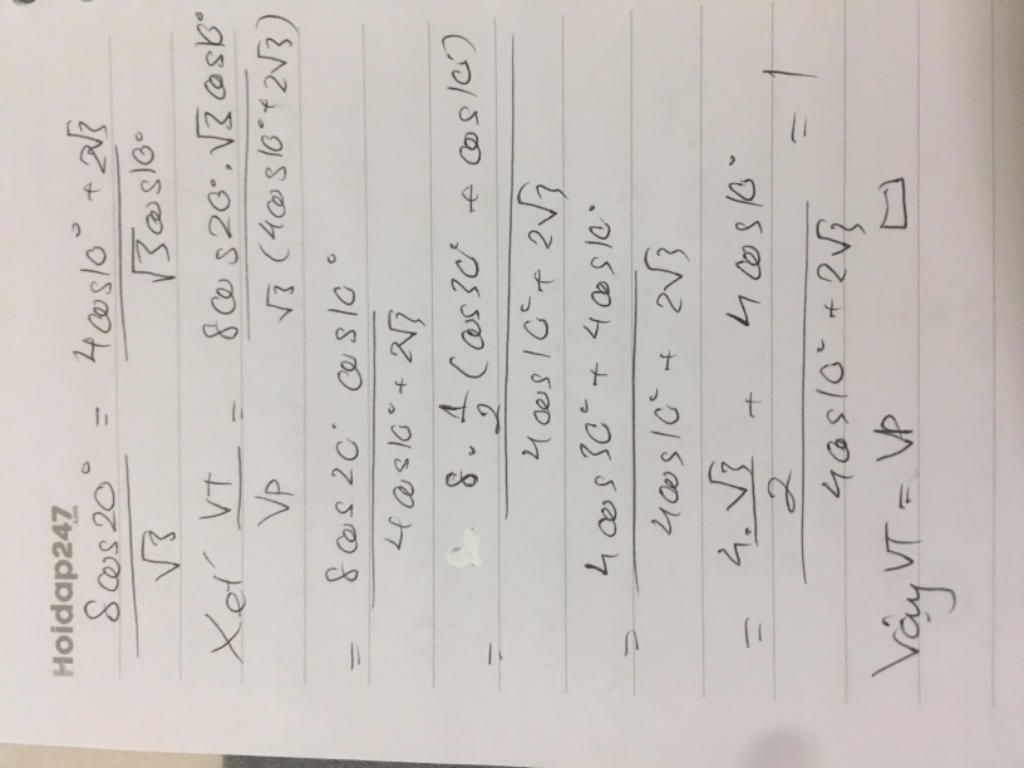 Hoidap247.com
8cos20° / √3 = 4cos10° + 2√3 / √3cos10°
Xét VT / VP = 8cos20°.√3cos10° / √3(4cos10° + 2√3)
= 8cos20° cos10° / 4cos10° + 2√3
= 8.1/2(cos30° + cos10°) / 4cos10° + 2√3
= 4cos30° + 4cos10° / 4cos10° + 2√3
= 4.√3/2 + 4cos10° / 4cos10° + 2√3 = 1
Vậy VT = VP □